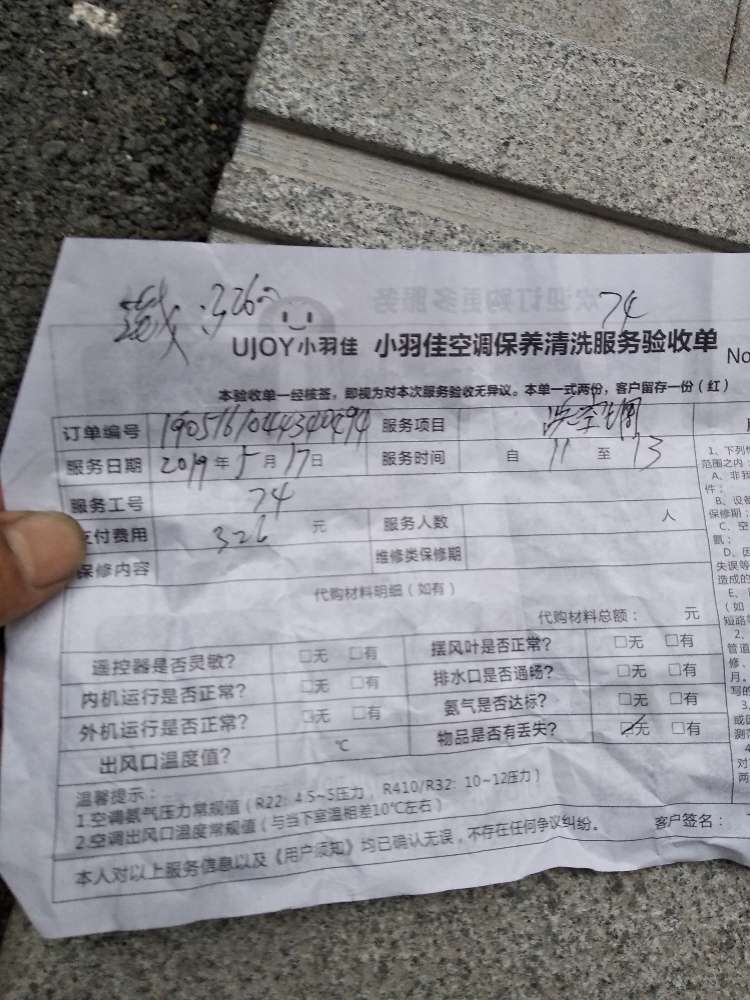 326
74
UJOY小羽佳 小羽佳空调保养清洗服务验收单 No
本验收单一经核签，即视为对本次服务验收无异议。本单一式两份，客户留存一份（红）
订单编号 服务项目 洗空调
服务日期 2019年5月17日 服务时间 自 11 至 13
服务工号 74
支付费用 326 元 服务人数 人
保修内容 维修类保修期
代购材料明细（如有）
代购材料总额： 元
遥控器是否灵敏？ □无 □有 摆风叶是否正常？ □无 □有
内机运行是否正常？ □无 □有 排水口是否通畅？ □无 □有
外机运行是否正常？ □无 □有 氨气是否达标？ □无 □有
出风口温度值？ ℃ 物品是否有丢失？ ☑无 □有
温馨提示：
1.空调氨气压力常规值（R22：4.5~5压力，R410/R32：10~12压力）
2.空调出风口温度常规值（与当下室温相差10℃左右）
本人对以上服务信息以及《用户须知》均已确认无误，不存在任何争议纠纷。 客户签名：
1、下列
范围之内：
A、非我
件；
B、设备
保修期；
C、空
氨；
D、因
失误等
造成的
E、
（如
短路等
2、
管道
修、
月。
写的
3、
或因
测范
4
对
两